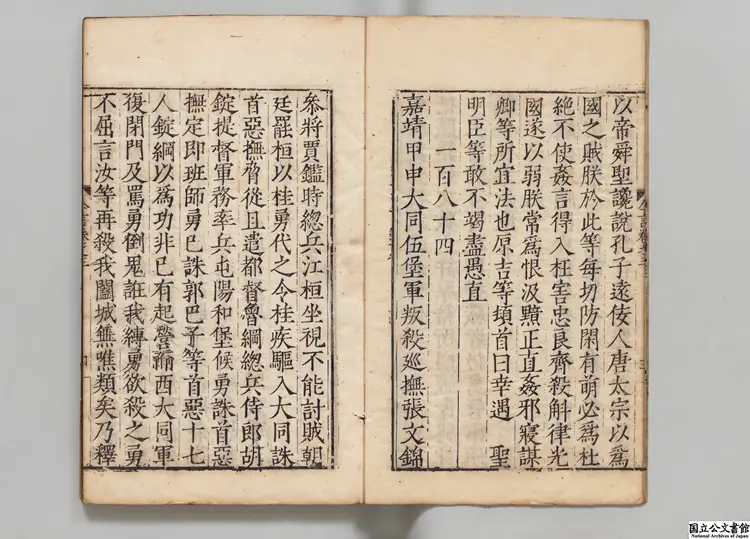 以帝舜聖讒說孔子遠佞人唐太宗以爲
國之賊朕於此等每切防閑有萌必爲杜
絕不使姦言得入枉害忠良齊殺斛律光
國遂以弱朕常爲恨汲黯正直姦邪寢謀
卿等所宜法也原吉等頓首曰幸遇 聖
明臣等敢不竭盡愚直
一百八十四
嘉靖甲申大同伍堡軍叛殺廵撫張文錦
叅將賈鑑時總兵江桓坐視不能討賊朝
廷罷桓以桂勇代之令桂疾驅入大同誅
首惡撫脅從且遣都督魯綱總兵侍郎胡
錠提督軍務率兵屯陽和堡候勇誅首惡
撫定即班師勇已誅郭巴子等首惡十七
人錠綱以爲功非已有起營而西大同軍
復閉門及罵勇倒鬼誑我縛勇欲殺之勇
不屈言汝等再殺我闔城無噍類矣乃釋
国立公文書館
National Archives of Japan